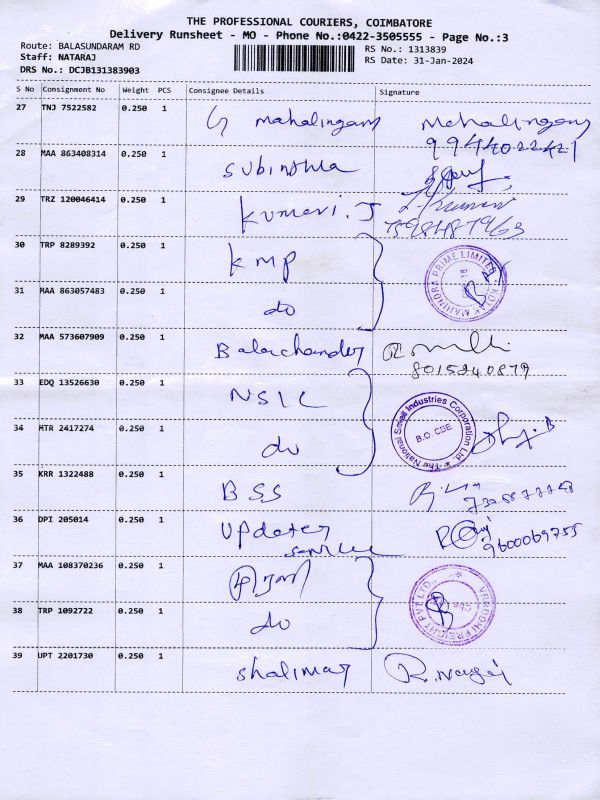 THE PROFESSIONAL COURIERS, COIMBATORE
Delivery Runsheet - MO - Phone No.:0422-3505555 - Page No.:3
Route: BALASUNDARAM RD
RS No.: 1313839
Staff: NATARAJ
RS Date: 31-Jan-2024
DRS No.: DCJB131383903
S No Consignment No Weight PCS Consignee Details Signature
27 TNJ 7522582 0.250 1 G Mahalingam Mahalingam
9944022421
28 MAA 863408314 0.250 1
29 TRZ 120046414 0.250 1 Kumari.J
30 TRP 8289392 0.250 1 KMP KOTAK MAHINDRA PRIME LIMITED
31 MAA 863057483 0.250 1 do
32 MAA 573607909 0.250 1 Balachander
8015240879
33 EDQ 13526630 0.250 1 NSIC
The National Small Industries Corporation Ltd. B.O. CBE
34 MTR 2417274 0.250 1 do
35 KRR 1322488 0.250 1 BSS
36 DPI 205014 0.250 1 Updater
service 9600069755
37 MAA 108370236 0.250 1 VRIDDHI FREIGHT PVT LTD.,
38 TRP 1092722 0.250 1 do
39 UPT 2201730 0.250 1 Shalimar